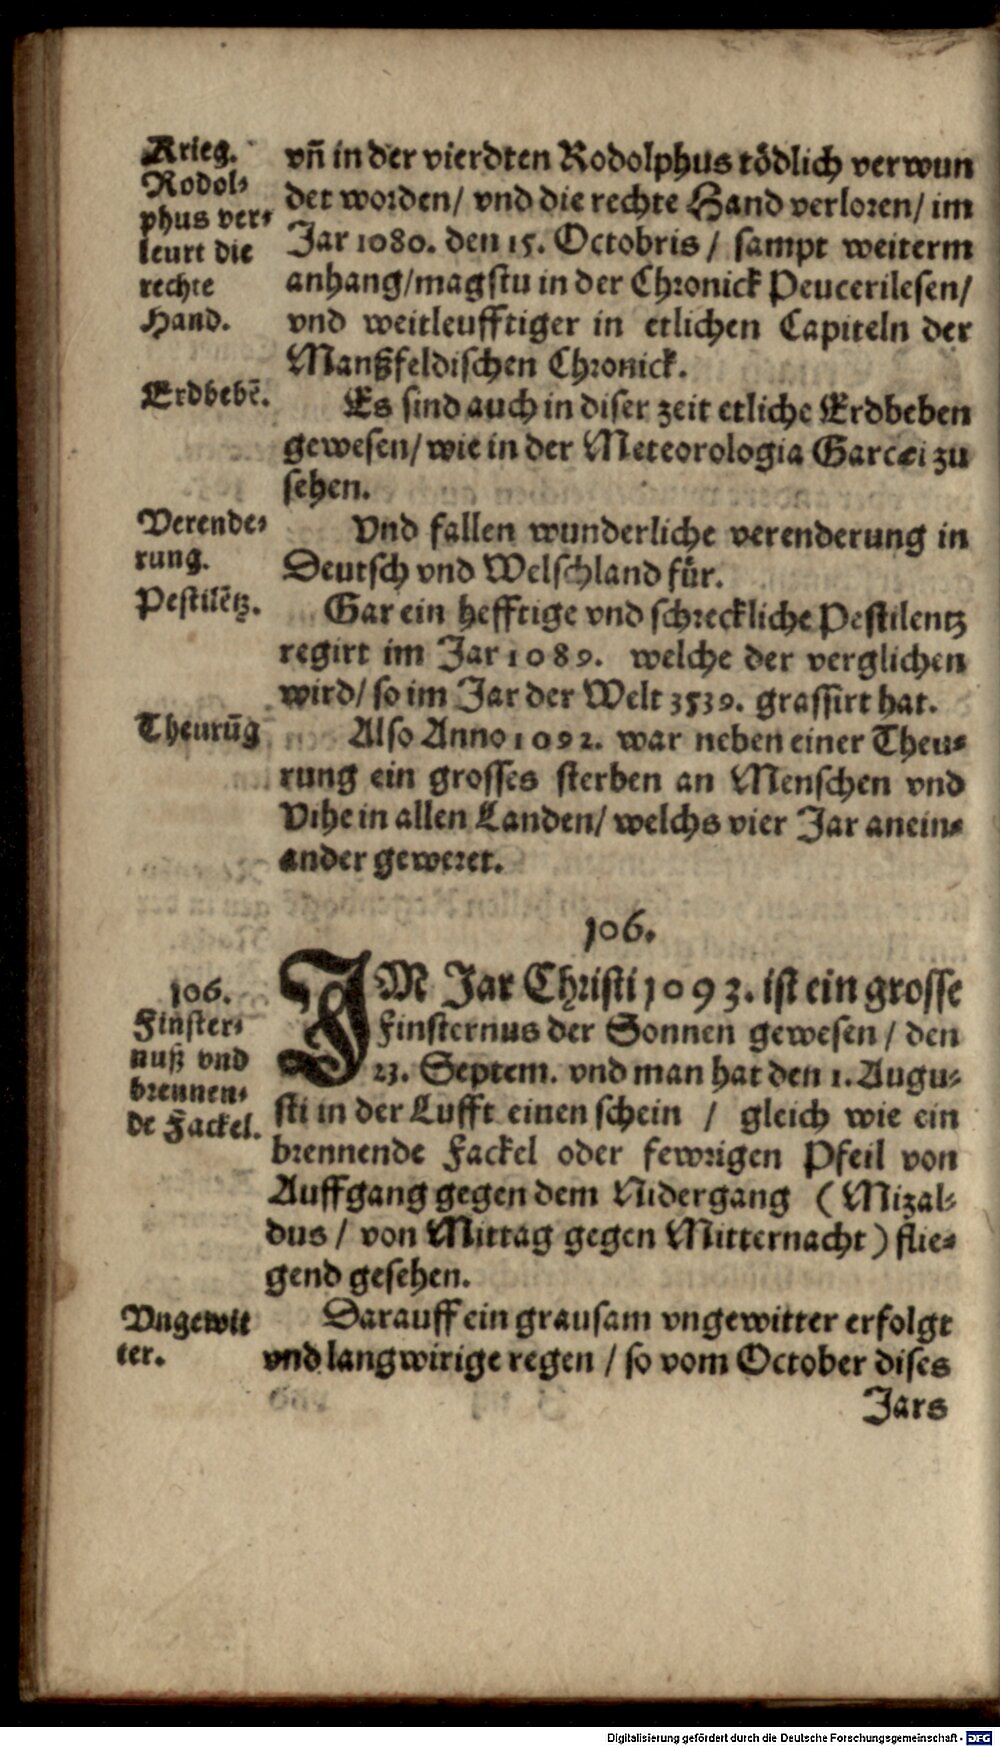 Krieg.
Rodol⸗
phus ver⸗
leurt die
rechte
Hand.
vñ in der vierdten Rodolphus tödlich verwun
det worden/ vnd die rechte Hand verloren/ im
Jar 1080. den 15. Octobris / sampt weiterm
anhang/magstu in der Chronick Peucerilesen/
vnd weitleufftiger in etlichen Capiteln der
Manßfeldischen Chronick.
Erdbebẽ.
Es sind auch in diser zeit etliche Erdbeben
gewesen/ wie in der Meteorologia Garcæi zu
sehen.
Verende⸗
rung.
Vnd fallen wunderliche verenderung in
Deutsch vnd Welschland für.
Pestilẽtz.
Gar ein hefftige vnd schreckliche Pestilentz
regirt im Jar 1089. welche der verglichen
wird/ so im Jar der Welt 3539. grassirt hat.
Theurũg
Also Anno 1092. war neben einer Theu⸗
rung ein grosses sterben an Menschen vnd
Vihe in allen Landen/ welchs vier Jar anein⸗
ander geweret.
106.
106.
Finster⸗
nuß vnd
brennen⸗
de Fackel.
IM Jar Christi 1093. ist ein grosse
Finsternus der Sonnen gewesen / den
23. Septem. vnd man hat den 1. Augu⸗
sti in der Lufft einen schein / gleich wie ein
brennende Fackel oder fewrigen Pfeil von
Auffgang gegen dem Nidergang (Mizal⸗
dus / von Mittag gegen Mitternacht) flie⸗
gend gesehen.
Vngewit
ter.
Darauff ein grausam vngewitter erfolgt
vnd langwirige regen / so vom October dises
Jars
Digitalisierung gefördert durch die Deutsche Forschungsgemeinschaft - DFG